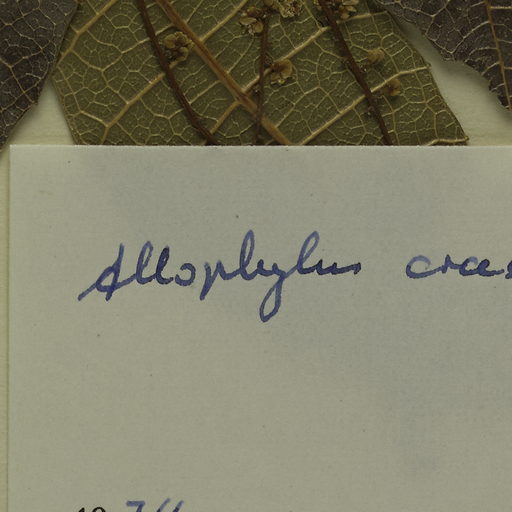 Allophylus cras